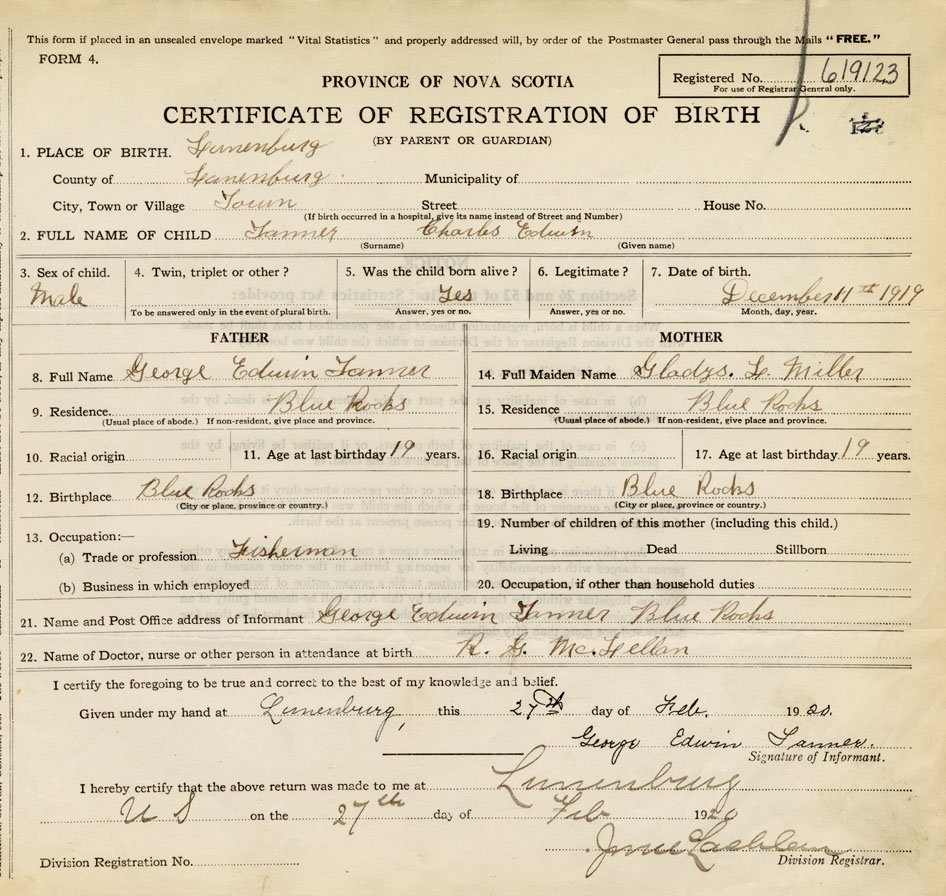 This form if placed in an unsealed envelope marked "Vital Statistics" and properly addressed will, by order of the Postmaster General pass through the Mails "FREE."
FORM 4.
Registered No. 619123
For use of Registrar General only.
PROVINCE OF NOVA SCOTIA
CERTIFICATE OF REGISTRATION OF BIRTH
(BY PARENT OR GUARDIAN)
1. PLACE OF BIRTH. Lunenburg
County of Lunenburg Municipality of
City, Town or Village Town Street House No.
(If birth occurred in a hospital, give its name instead of Street and Number)
2. FULL NAME OF CHILD Tanner Charles Edwin
(Surname) (Given name)
3. Sex of child. 4. Twin, triplet or other? 5. Was the child born alive? 6. Legitimate? 7. Date of birth.
Male Yes December 11th 1919
To be answered only in the event of plural birth. Answer, yes or no. Answer, yes or no. Month, day, year.
FATHER MOTHER
8. Full Name George Edwin Tanner 14. Full Maiden Name Gladys. L. Miller
9. Residence. Blue Rocks 15. Residence Blue Rocks
(Usual place of abode.) If non-resident, give place and province. (Usual place of abode.) If non-resident, give place and province.
10. Racial origin 11. Age at last birthday 19 years. 16. Racial origin 17. Age at last birthday 19 years.
12. Birthplace Blue Rocks 18. Birthplace Blue Rocks
(City or place, province or country.) (City or place, province or country.)
13. Occupation:— 19. Number of children of this mother (including this child.)
(a) Trade or profession Fisherman Living Dead Stillborn
(b) Business in which employed 20. Occupation, if other than household duties
21. Name and Post Office address of Informant George Edwin Tanner Blue Rocks
22. Name of Doctor, nurse or other person in attendance at birth R. G. McLellan
I certify the foregoing to be true and correct to the best of my knowledge and belief.
Given under my hand at Lunenburg, this 27th day of Feb. 1920.
George Edwin Tanner.
Signature of Informant.
I hereby certify that the above return was made to me at Lunenburg
on the 27th day of Feb 1920
Division Registration No. Division Registrar.